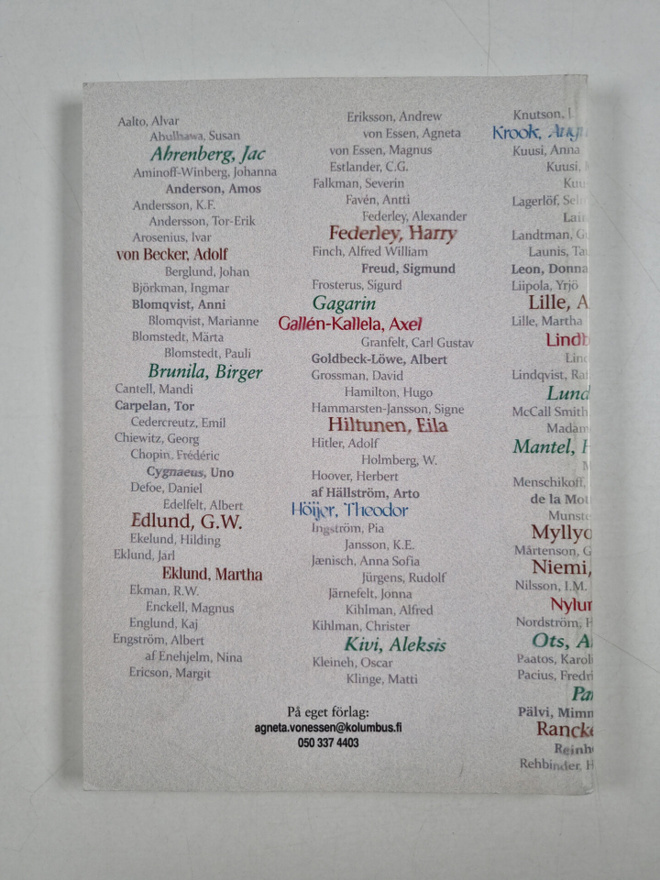 Aalto, Alvar
Abulhawa, Susan
Ahrenberg, Jac
Aminoff-Winberg, Johanna
Anderson, Amos
Andersson, K.F.
Andersson, Tor-Erik
Arosenius, Ivar
von Becker, Adolf
Berglund, Johan
Björkman, Ingmar
Blomqvist, Anni
Blomqvist, Marianne
Blomstedt, Märta
Blomstedt, Pauli
Brunila, Birger
Cantell, Mandi
Carpelan, Tor
Cedercreutz, Emil
Chiewitz, Georg
Chopin, Frédéric
Cygnaeus, Uno
Defoe, Daniel
Edelfelt, Albert
Edlund, G.W.
Ekelund, Hilding
Eklund, Jarl
Eklund, Martha
Ekman, R.W.
Enckell, Magnus
Englund, Kaj
Engström, Albert
af Enehjelm, Nina
Ericson, Margit
Eriksson, Andrew
von Essen, Agneta
von Essen, Magnus
Estlander, C.G.
Falkman, Severin
Favén, Antti
Federley, Alexander
Federley, Harry
Finch, Alfred William
Freud, Sigmund
Frosterus, Sigurd
Gagarin
Gallén-Kallela, Axel
Granfelt, Carl Gustav
Goldbeck-Löwe, Albert
Grossman, David
Hamilton, Hugo
Hammarsten-Jansson, Signe
Hiltunen, Eila
Hitler, Adolf
Holmberg, W.
Hoover, Herbert
af Hällström, Arto
Höijer, Theodor
Ingström, Pia
Jansson, K.E.
Jænisch, Anna Sofia
Jürgens, Rudolf
Järnefelt, Jonna
Kihlman, Alfred
Kihlman, Christer
Kivi, Aleksis
Kleineh, Oscar
Klinge, Matti
Knutson,
Krook,
Kuusi, Anna
Kuusi,
Lagerlöf,
Landtman,
Launis,
Leon, Donna
Liipola, Yrjö
Lille, A
Lille, Martha
Lindqvist,
McCall Smith
Mantel, H
Menschikoff,
de la
Mårtenson, G
Niemi,
Nilsson, I.M.
Nordström, H
Ots, A
Paatos,
Pacius,
Pälvi,
Rehbinder, H
På eget förlag:
agneta.vonessen@kolumbus.fi
050 337 4403